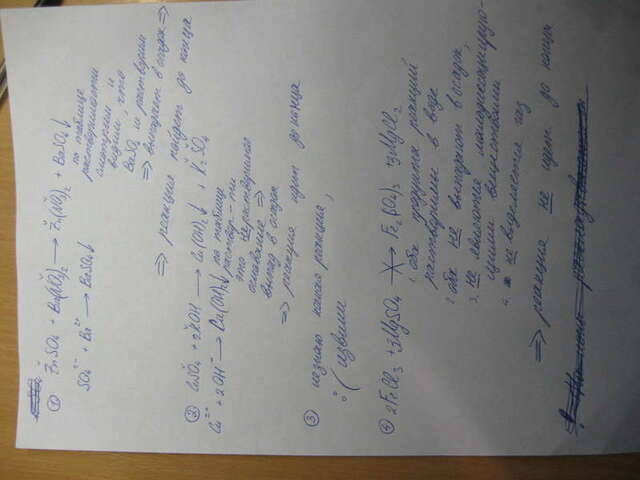 ① ZnSO₄ + Ba(NO₃)₂ ⟶ Zn(NO₃)₂ + BaSO₄↓
SO₄²⁻ + Ba²⁺ ⟶ BaSO₄↓
по таблице
растворимости
смотрим и
видим, что
BaSO₄ не растворим
⇒ выпадет в осадок ⇒
⇒ реакция пойдёт до конца
② CuSO₄ + 2KOH ⟶ Cu(OH)₂↓ + K₂SO₄
Cu²⁺ + 2OH⁻ ⟶ Cu(OH)₂↓
по таблице
раствор-ти
это нерастворимое
основание ⇒
выпад в осадок
⇒ реакция идет до конца
③ незнаю какая реакция,
:( извини
④ 2FeCl₃ + 3MgSO₄ ⟶ Fe₂(SO₄)₃ + 3MgCl₂
1. оба продукта реакций
растворимы в воде
2. оба не выпадают в осадок,
3. не являются малодиссоциирую-
щими веществами
4. не выделяется газ
⇒ реакция не идет до конца